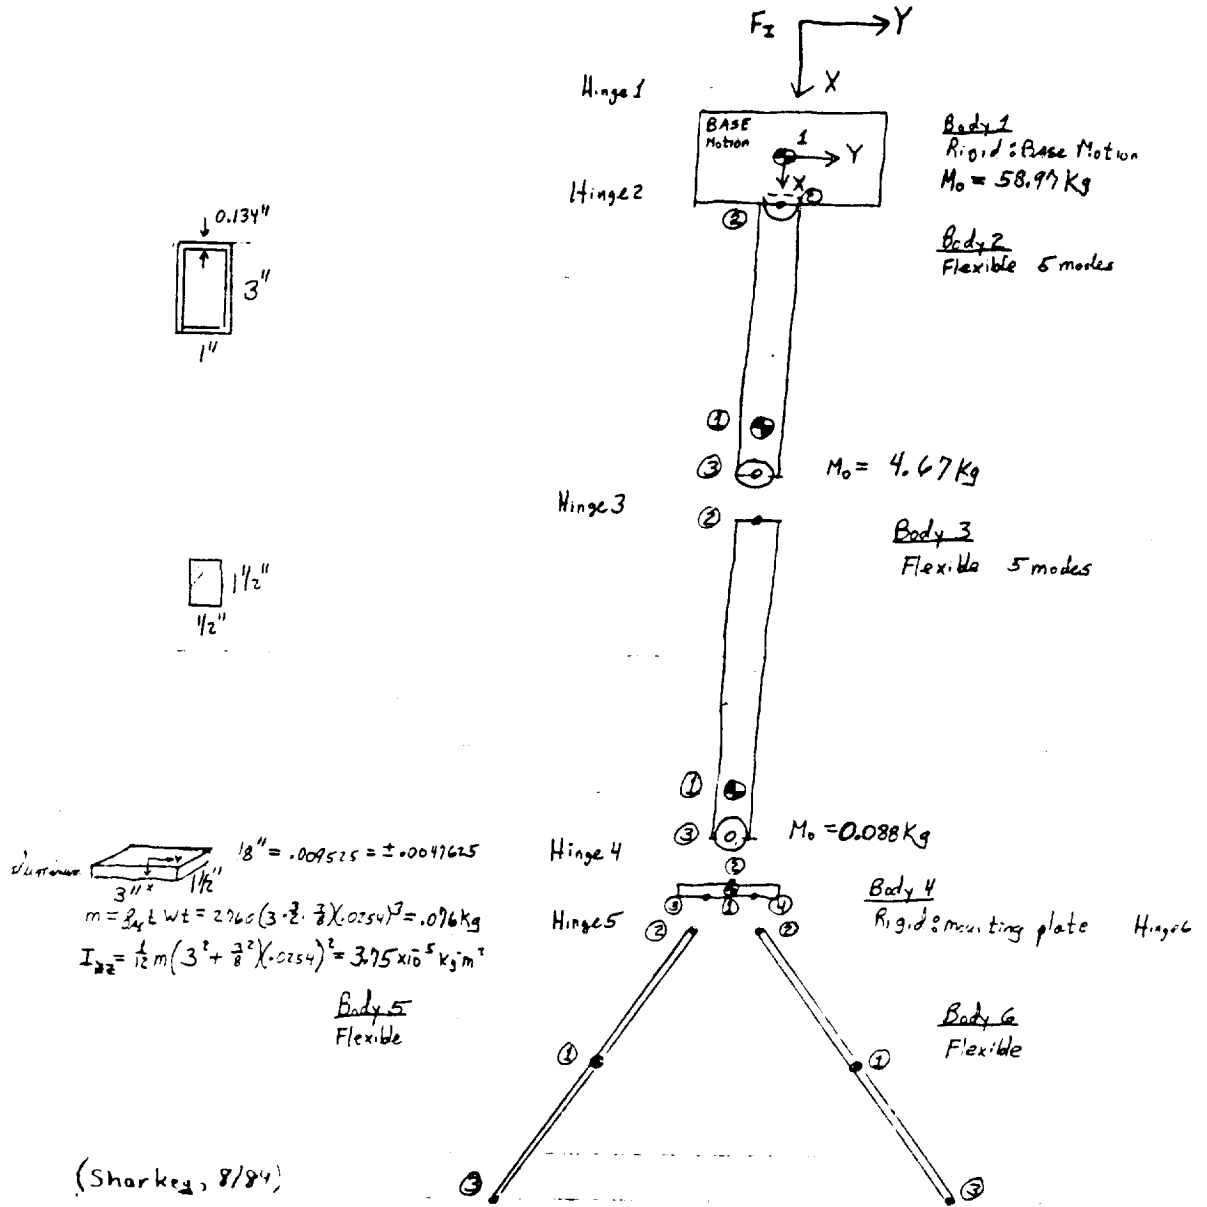 F_I
Y
X
Hinge 1
BASE
Motion
1
Y
X
Body 1
Rigid : BASE Motion
M₀ = 58.97 Kg
Hinge 2
②
②
Body 2
Flexible 5 modes
0.134"
3"
1"
①
③
M₀ = 4.67 Kg
Hinge 3
②
Body 3
Flexible 5 modes
1 1/2"
1/2"
①
③
M₀ = 0.088 Kg
Hinge 4
②
3"
x
Y
1 1/2"
/8" = .009525 = ± .0047625
m = ρ_Al t W t = 2760 (3 · 3/2 · 3/8)(.0254)³ = .076 kg
I_zz = 1/12 m (3² + 3/8²)(.0254)² = 3.75 x10⁻⁵ kg-m²
③
①
④
Body 4
Rigid : mounting plate
Hinge 5
Hinge 6
②
②
Body 5
Flexible
Body 6
Flexible
①
①
③
③
(Sharkey, 8/84)